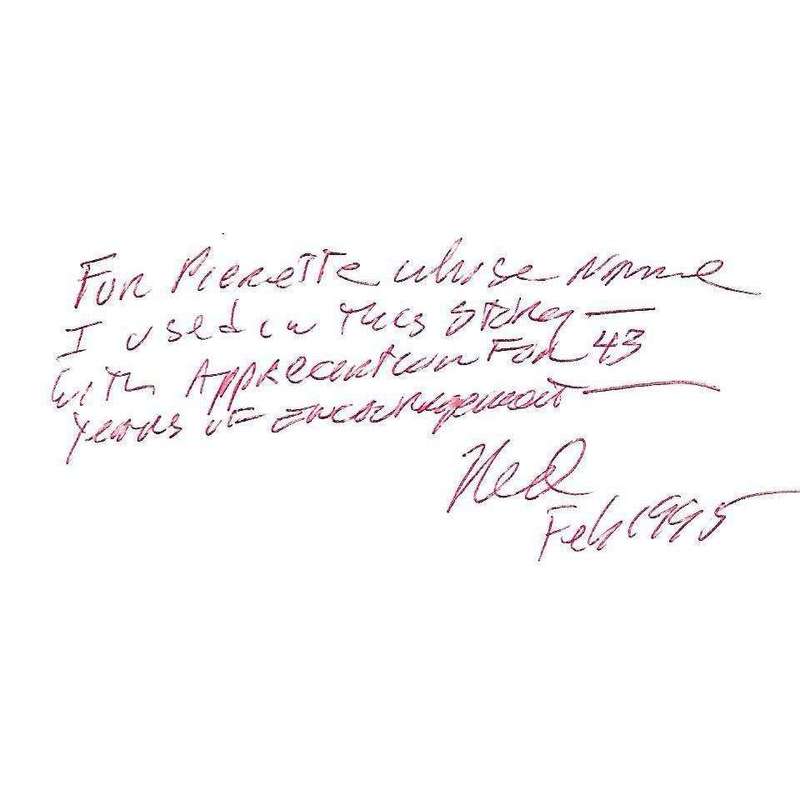 For Pierette whose Name
I used in this story —
with Appreciation For 43
years of encouragement —
Ned
Feb 1995